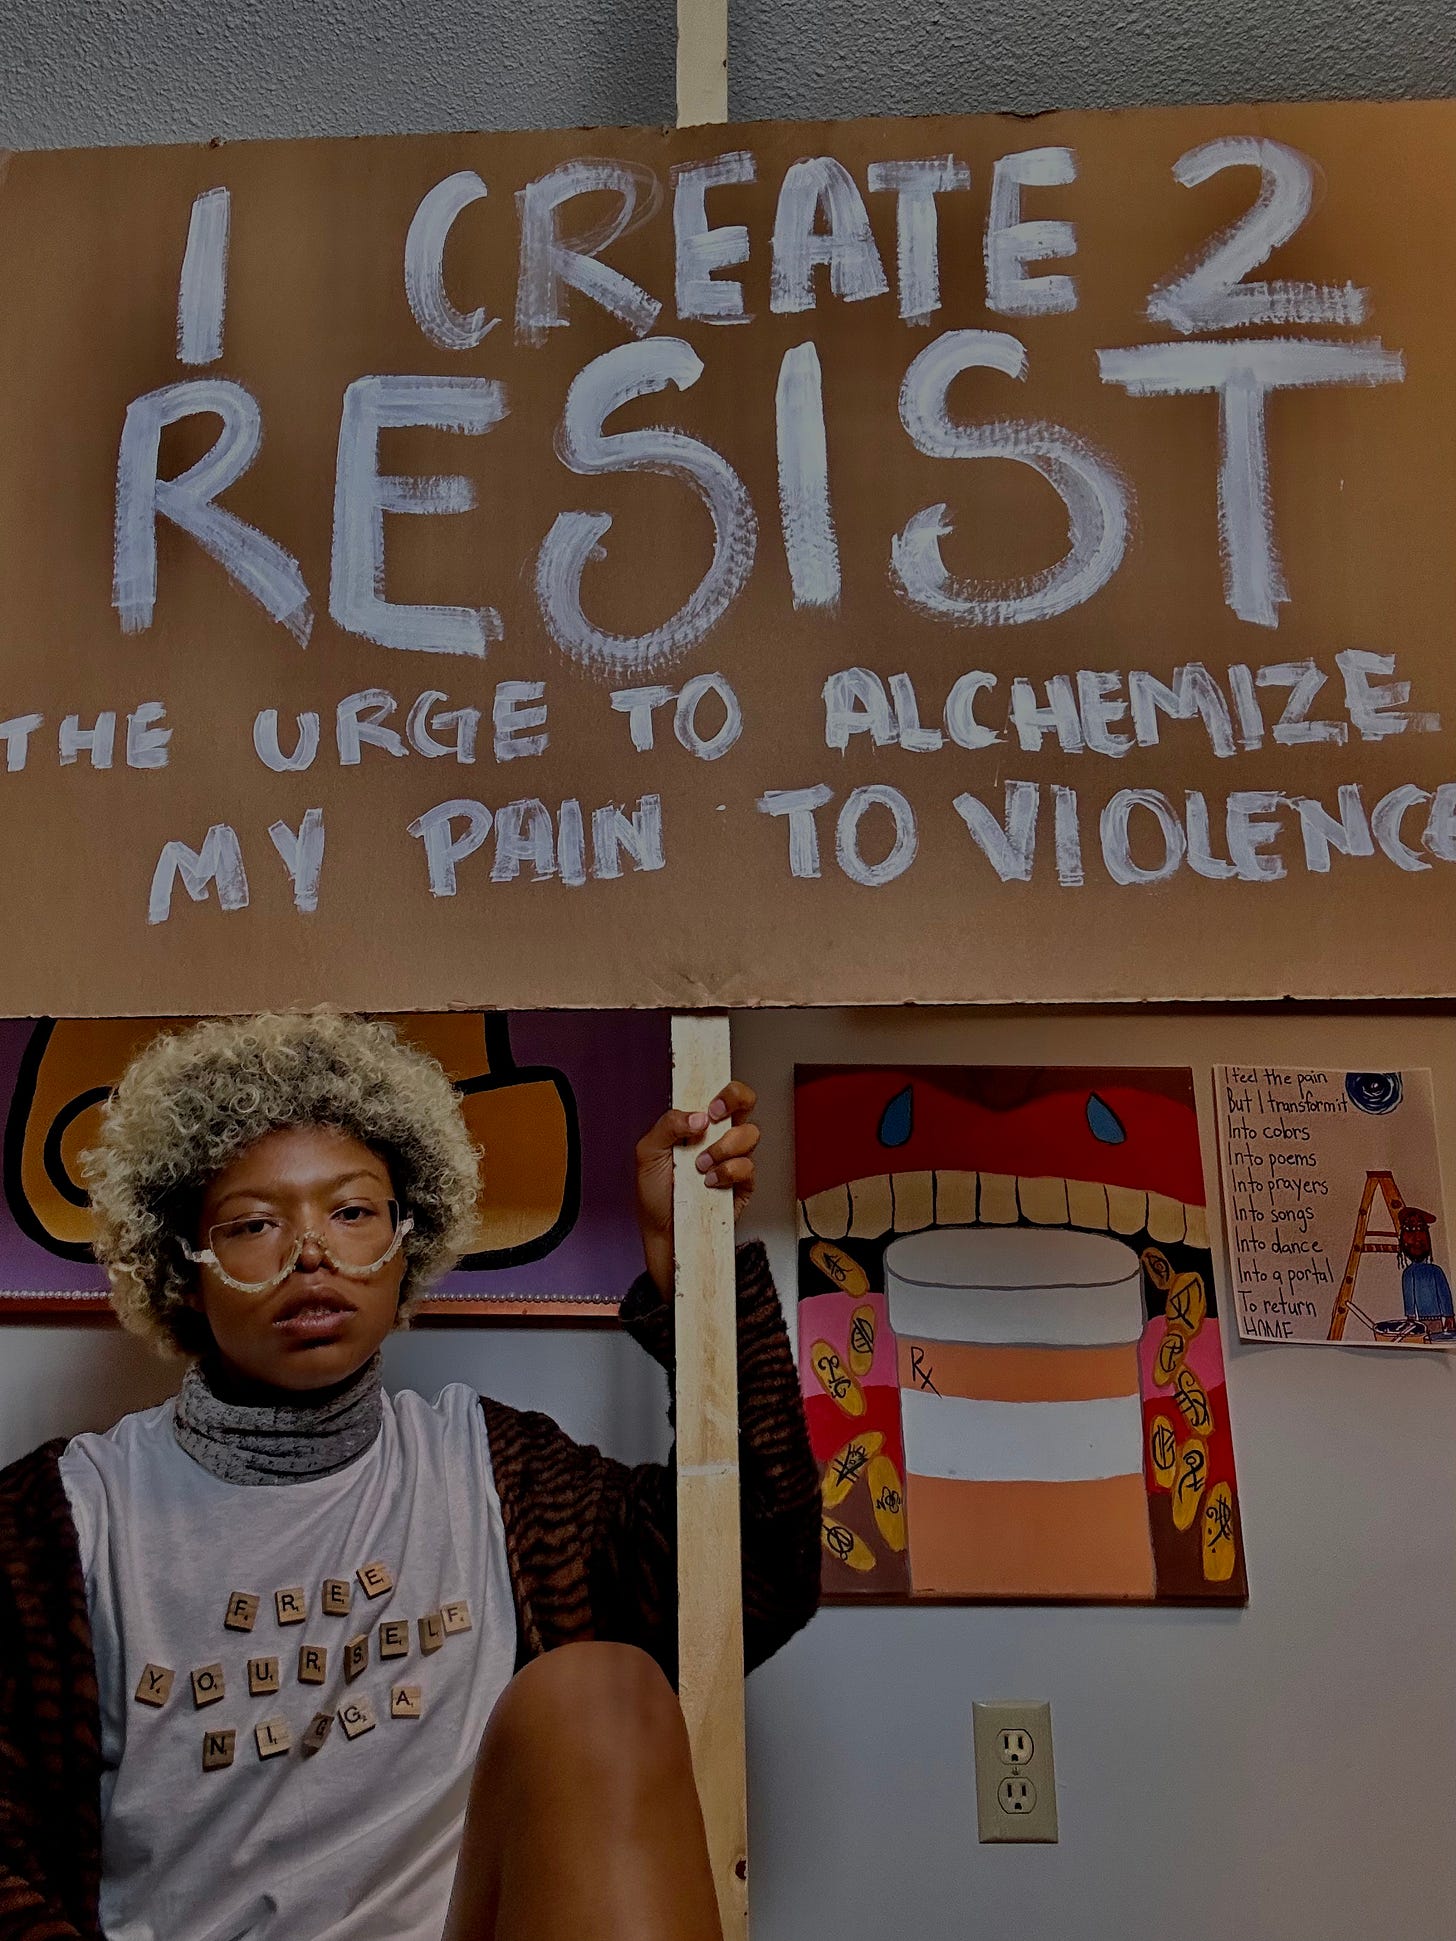 I CREATE 2
RESIST
THE URGE TO ALCHEMIZE
MY PAIN TO VIOLENCE
I feel the pain
But I transform it
Into colors
Into poems
Into prayers
Into songs
Into dance
Into a portal
To return
HOME
Rx
FREE
YOURSELF
NIGGA